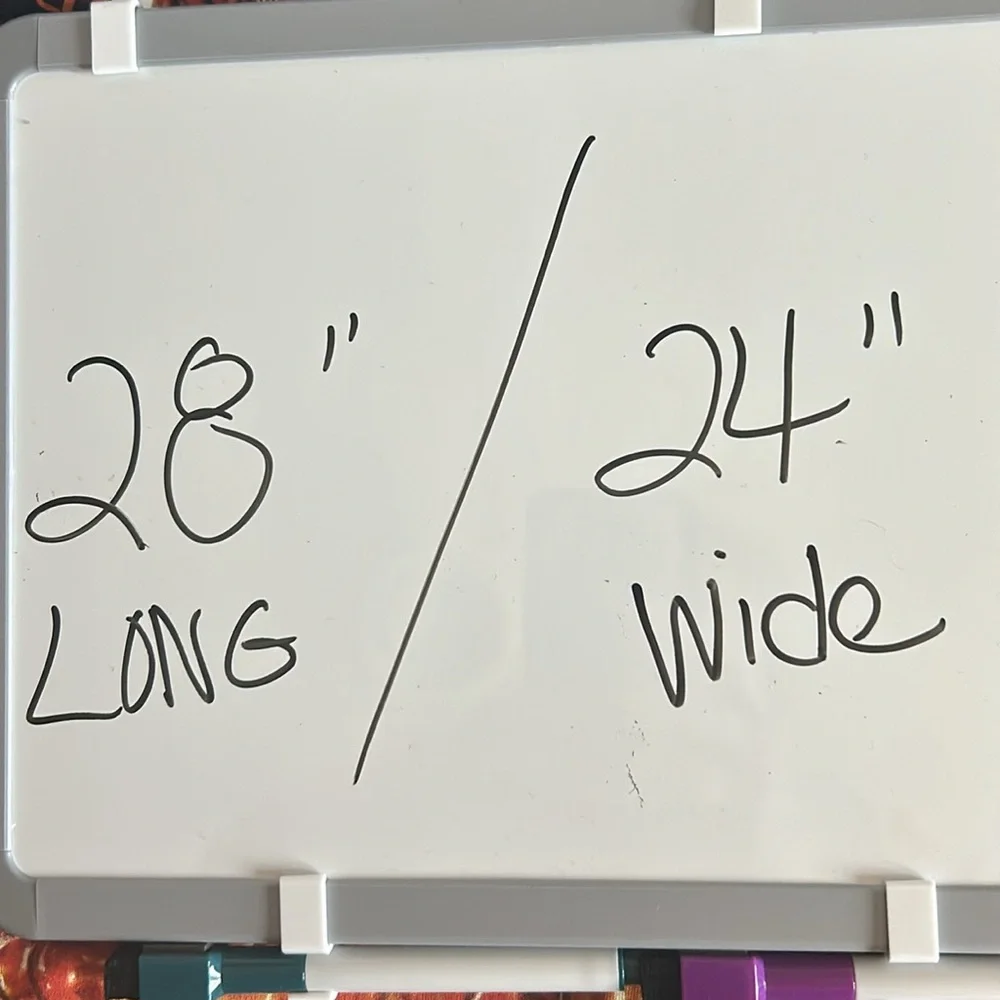 28" / 24"
LONG wide